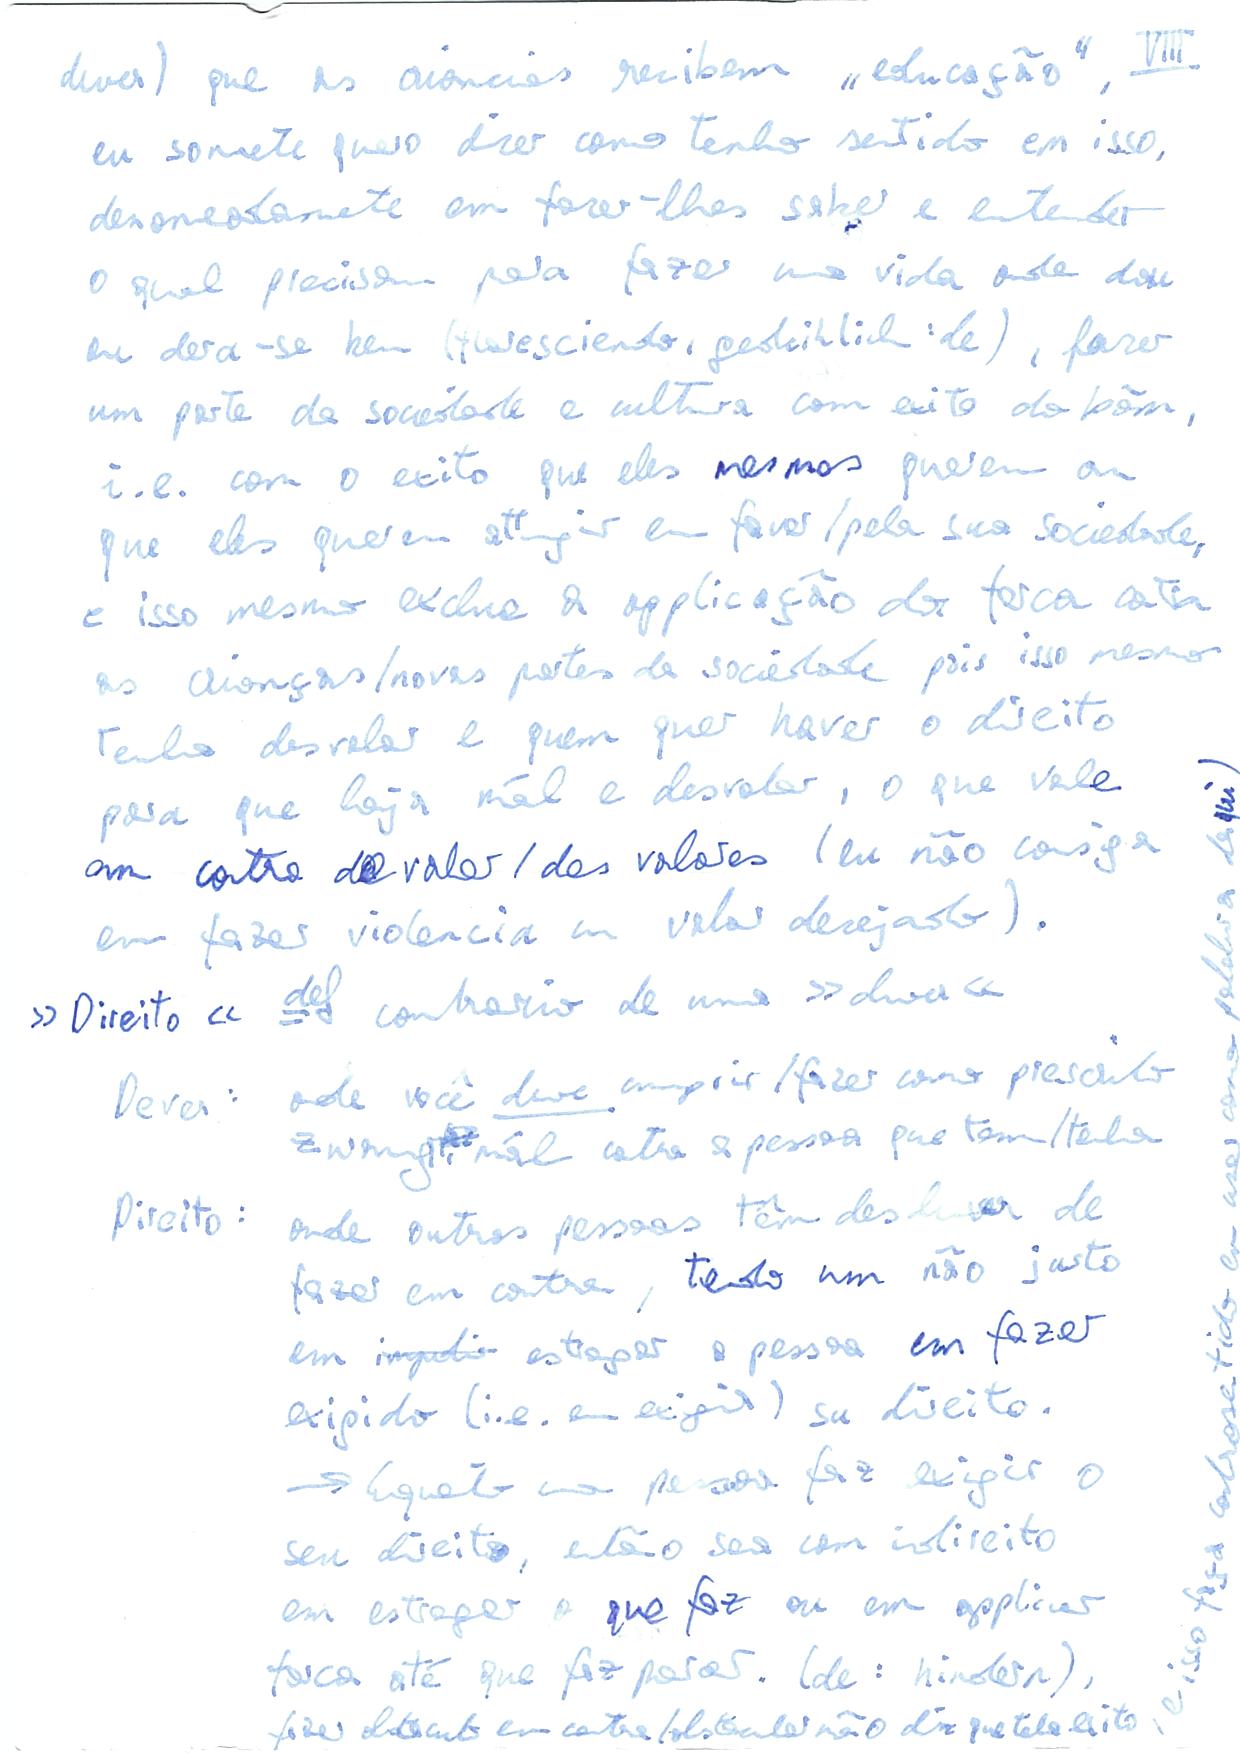 VIII
dever) que as ciancias recibem „educação“,
eu somete quero dizer como tenho sentido em isso,
em fazer-lhes saber e entender
o qual precisam para fazer uma vida onde dou
ou dera-se bem (floresciendo, gedeihlich :de), fazer
um parte da sociedade e cultura com exito do bõm,
i.e. com o exito que eles mesmos querem ou
que eles querem attingir em favor/pela sua sociedade,
e isso mesmo exclue a applicação da forca cotra
as crianças/novas partes da sociedade pois isso mesmo
tenha desvalor e quem quer haver o direito
para que haja mál e desvalor, o que vale
em contra do valor/dos valores (eu não consiga
em fazer violencia um valor desejado).
»Direito« def contrario de uma »deva«
Dever: onde você deve cumprir/fazer como prescrito
mál cotra a pessoa que tem/tenha
Direito: onde outras pessoas têm desdever de
fazer em contra, tendo um não justo
em estragar a pessoa em fazer
exigido (i.e. em exigir) su direito.
→ Enquato uma pessoa faz exigir o
seu direito, então sea com indireito
em estragar o que faz ou em applicar
forca até que faz parar. (de: hindern),
fazer obstaculo em contra/obstacular não diz que tela exito,
e isso faça controsetido em usar como palabra daqui)